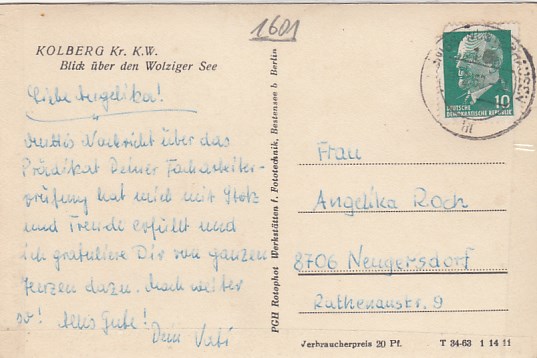 1601
KOLBERG Kr. K.W.
Blick über den Wolziger See
Liebe Angelika!
Muttis Nachricht über das
Prädikat Deiner Facharbeiter-
prüfung hat mich mit Stolz
und Freude erfüllt und
ich gratuliere Dir von ganzem
Herzen dazu. Mach weiter
so! Alles Gute!
Dein Vati
PGH Rotophot Werkstätten f. Fototechnik, Bestensee b Berlin
10
DEUTSCHE
DEMOKRATISCHE REPUBLIK
Frau
Angelika Roch
8706 Neugersdorf
Rathenaustr. 9
Verbraucherpreis 20 Pf.
T 34-63 1 14 11